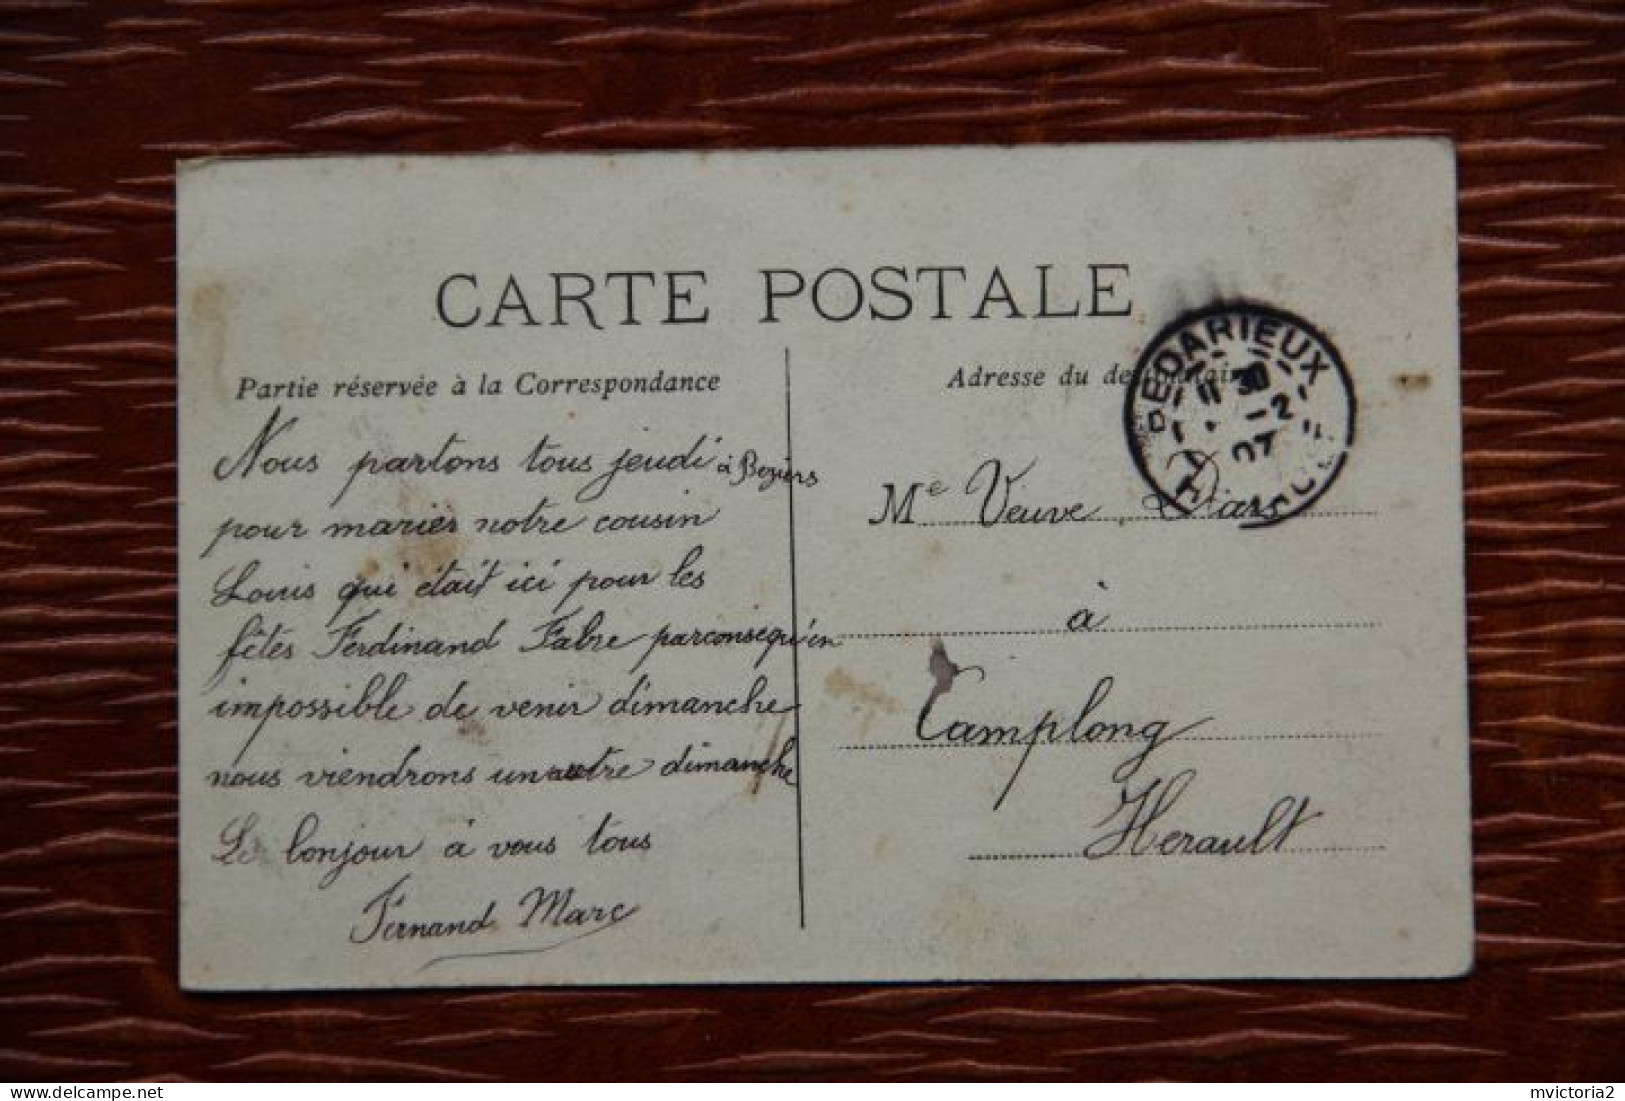 CARTE POSTALE
Partie réservée à la Correspondance
Nous partons tous jeudi à Beziers
pour marier notre cousin
Louis qui était ici pour les
fêtes Ferdinand Fabre parconsequ'en
impossible de venir dimanche
nous viendrons un autre dimanche
Le bonjour à vous tous
Fernand Marc
Adresse du
BEDARIEUX
11 30
-2
07
HERAULT
Me Veuve
à
Camplong
Herault
mvictoria2